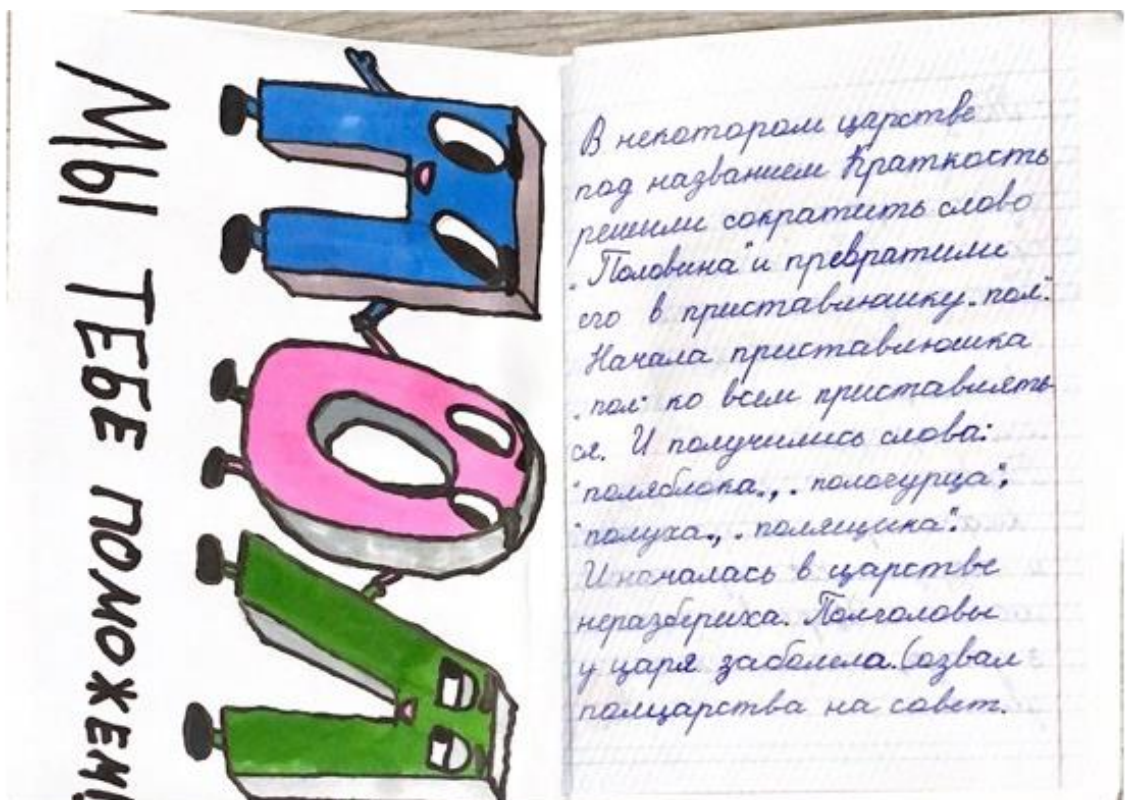 МЫ ТЕБЕ ПОМОЖЕМ!
ПОЛ
В некотором царстве
под названием Краткость
решили сократить слово
"Половина" и превратили
его в приставлюшку "пол".
Начала приставлюшка
"пол" ко всем приставлять-
ся. И получились слова:
"поляблока", "пологурца",
"полуха", "полящика".
И началась в царстве
неразбериха. Полголовы
у царя заболела. Созвал
полцарства на совет.